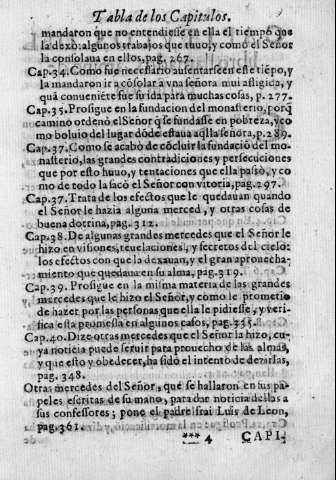 Tabla de los Capitulos.
mandaron que no entendiesse en ella el tiempo que
la dexò: algunos trabajos que tuuo, y como el Señor
la consolaua en ellos, pag. 267.
Cap. 34. Como fue necessario ausentarse en este tiẽpo, y
la mandaron ir a cõsolar a vna señora mui afligida, y
quã conueniẽte fue su ida para muchas cosas, p. 277.
Cap. 35. Prosigue en la fundacion del monasterio, porq̃
camino ordenò el Señor q̃ se fundasse en pobreza, y co
mo boluio del lugar dõde estaua aq̃lla señora, p. 289.
Cap. 37. Como se acabò de cõcluir la fundaciõ del mo-
nasterio, las grandes contradiciones y persecuciones
que por esto huuo, y tentaciones que ella passò, y co
mo de todo la sacò el Señor con vitoria, pag. 297.
Cap. 37. Trata de los efectos que le quedauan quando
el Señor le hazia alguna merced, y otras cosas de
buena dotrina, pag. 312.
Cap. 38. De algunas grandes mercedes que el Señor le
hizo en visiones, reuelaciones, y secretos del cielo:
los efectos con que la dexauan, y el gran aprouecha-
miento que quedaua en su alma, pag. 319.
Cap. 39. Prosigue en la misma materia de las grandes
mercedes que le hizo el Señor, y como le prometio
de hazer por las personas que ella le pidiesse, y veri-
fica esta promessa en algunos casos, pag. 335.
Cap. 40. Dize otras mercedes que el Señor la hizo, cu-
ya noticia puede seruir para prouecho de las almas,
y que esto y obedecer, ha sido el intento de dezirlas,
pag. 348.
Otras mercedes del Señor, que se hallaron en sus pa-
peles escritas de su mano, para dar noticia dellas a
sus confessores; pone el padre frai Luis de Leon,
pag. 361.
*** 4 CAPI-